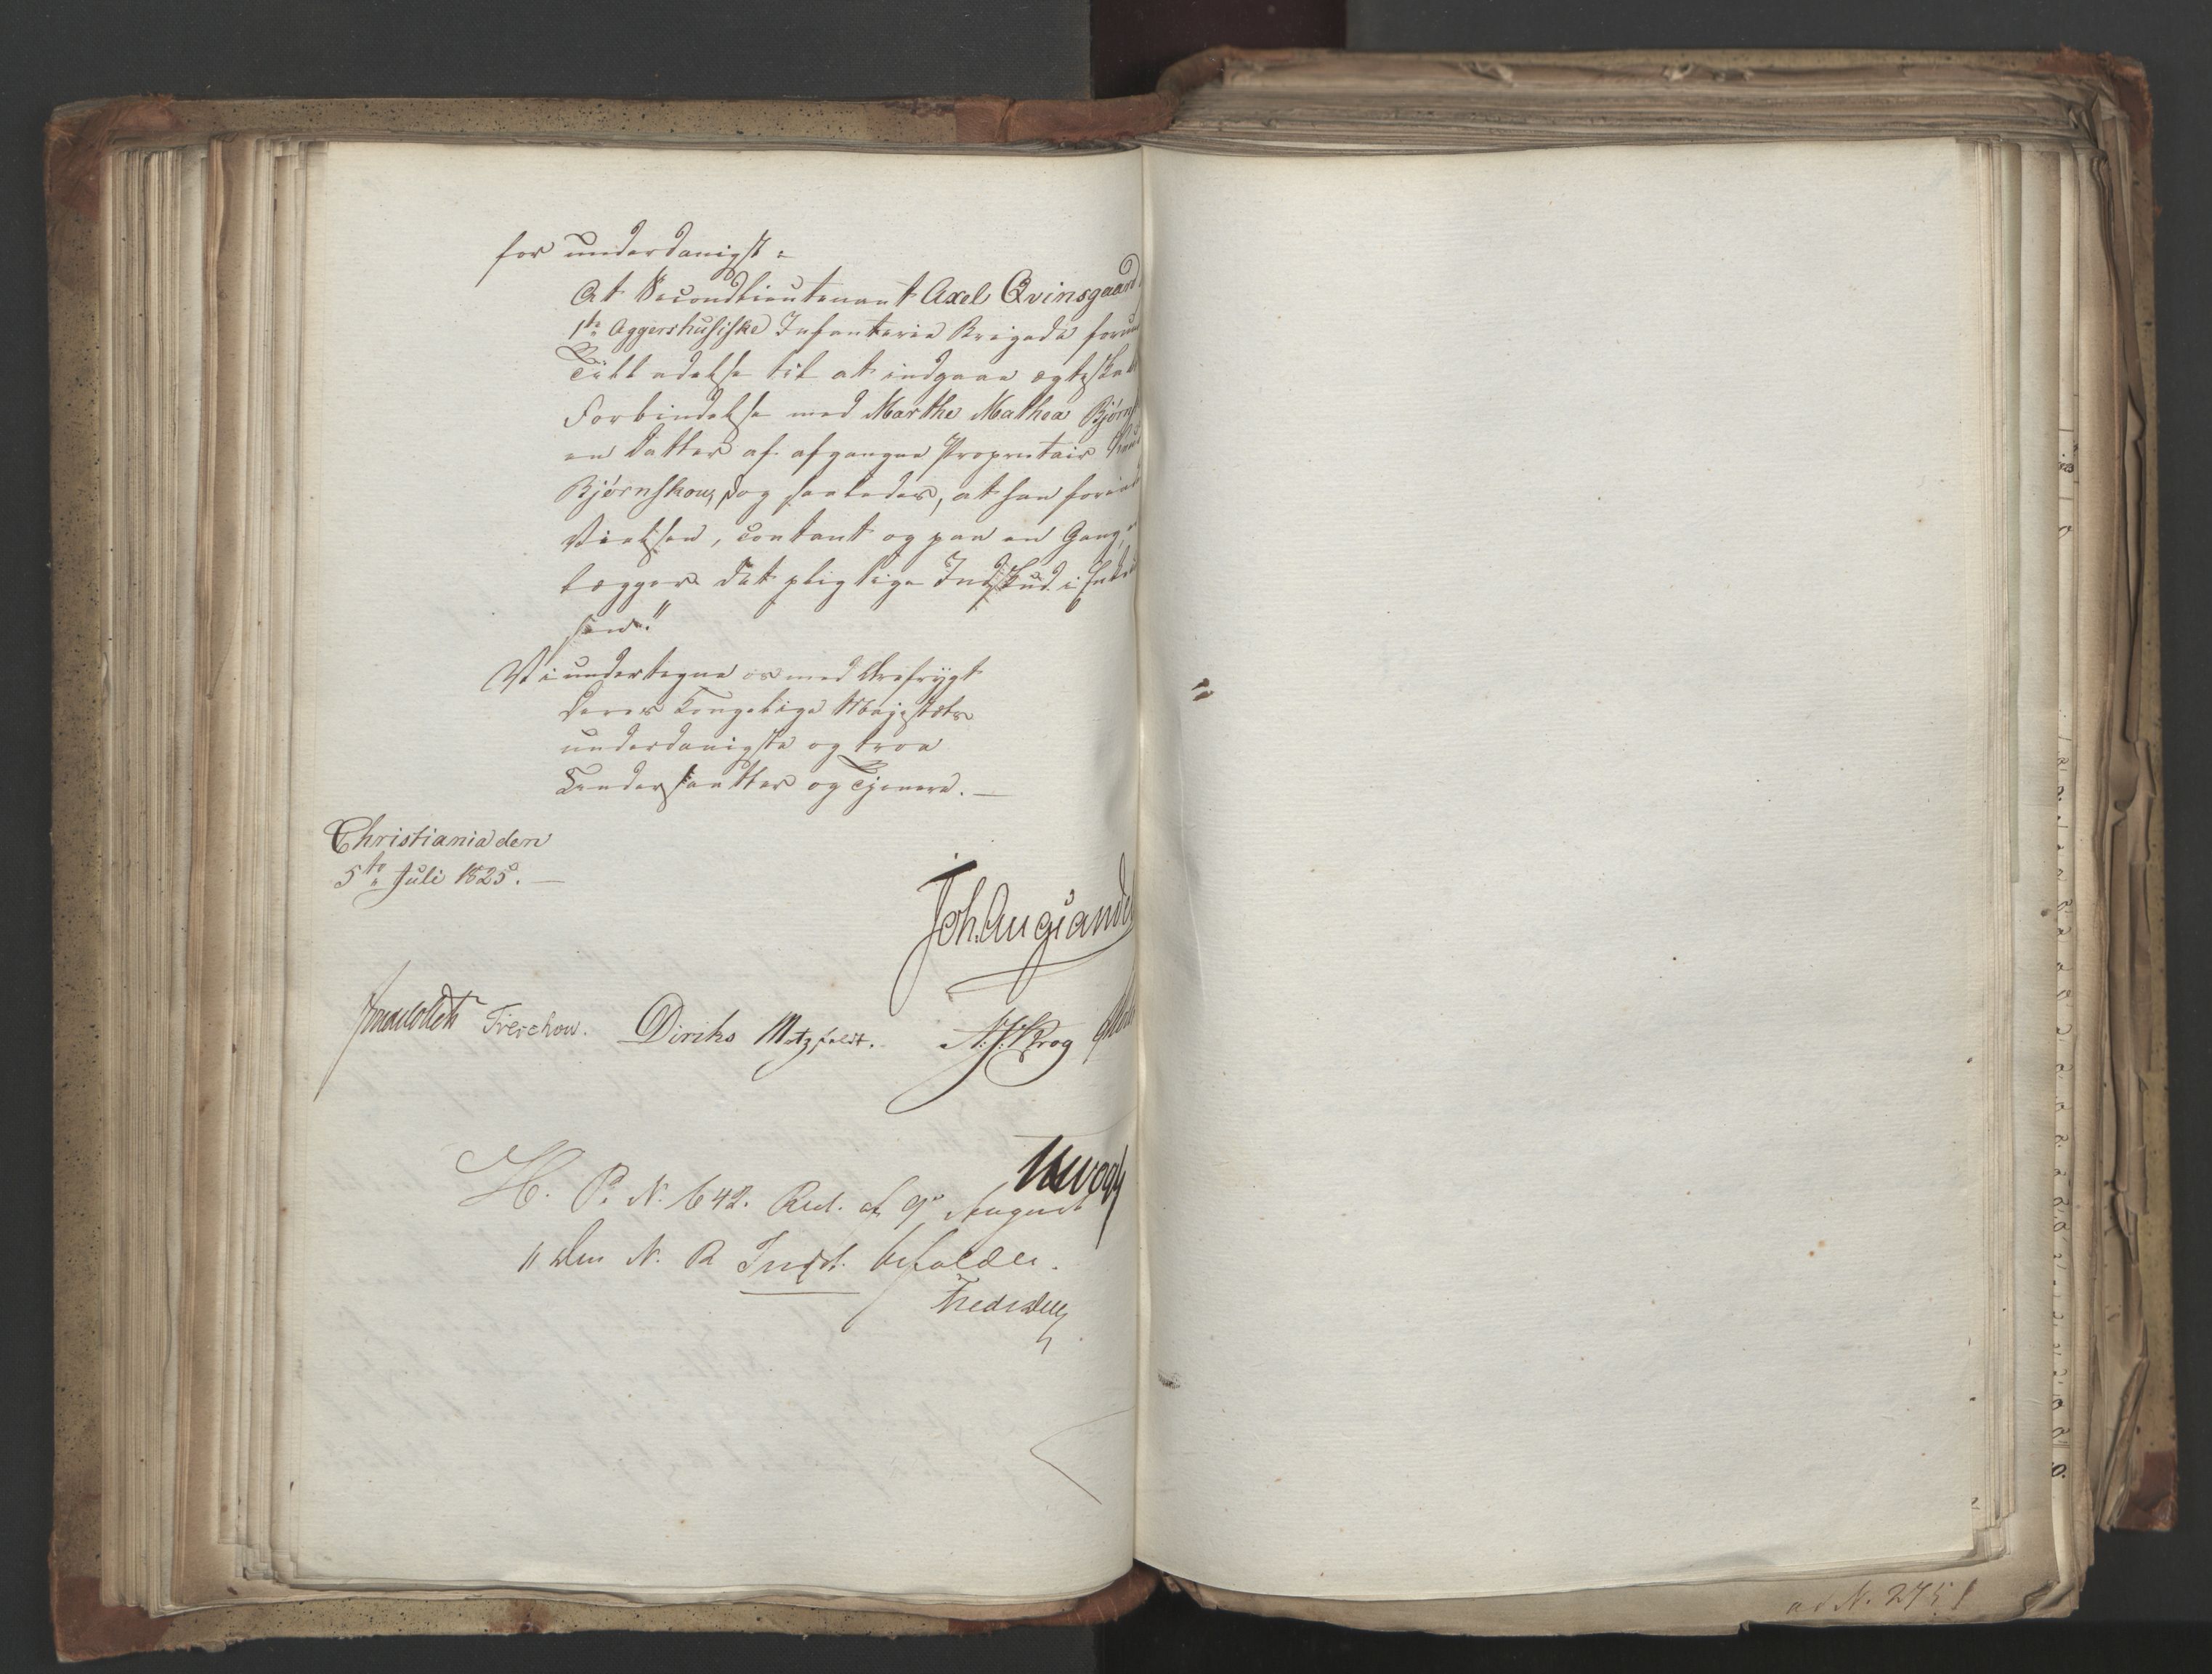 for underdanigst:
At Secondlieutenant Axel Qvinsgaard
1ste Aggershusiske Infanterie Brigade
Tilladelse til at indgaae ægteskab
Forbindelse med Marthe Mathea Bjørnsk
en Datter af afgangne Proprietair
Bjørnskou, dog saaledes, at han forinden
Vielsen, contant og paa en Gang
lægger det pligtige Indskud i Enke
sen."
Vi undertegne os med Ærefrygt
Deres Kongelige Majestæts
underdanigste og troe
Undersaatter og Tjenere. —
Christiania den
5te Juli 1825. —
Joh. Aug. Sandel
Collett Treschow. Diriks Motzfeldt. N. J. Krog
Vogt
H. P. N. 642. Res. af 9de August
" Den N. R. Indst. bifaldes.
ad N. 2751